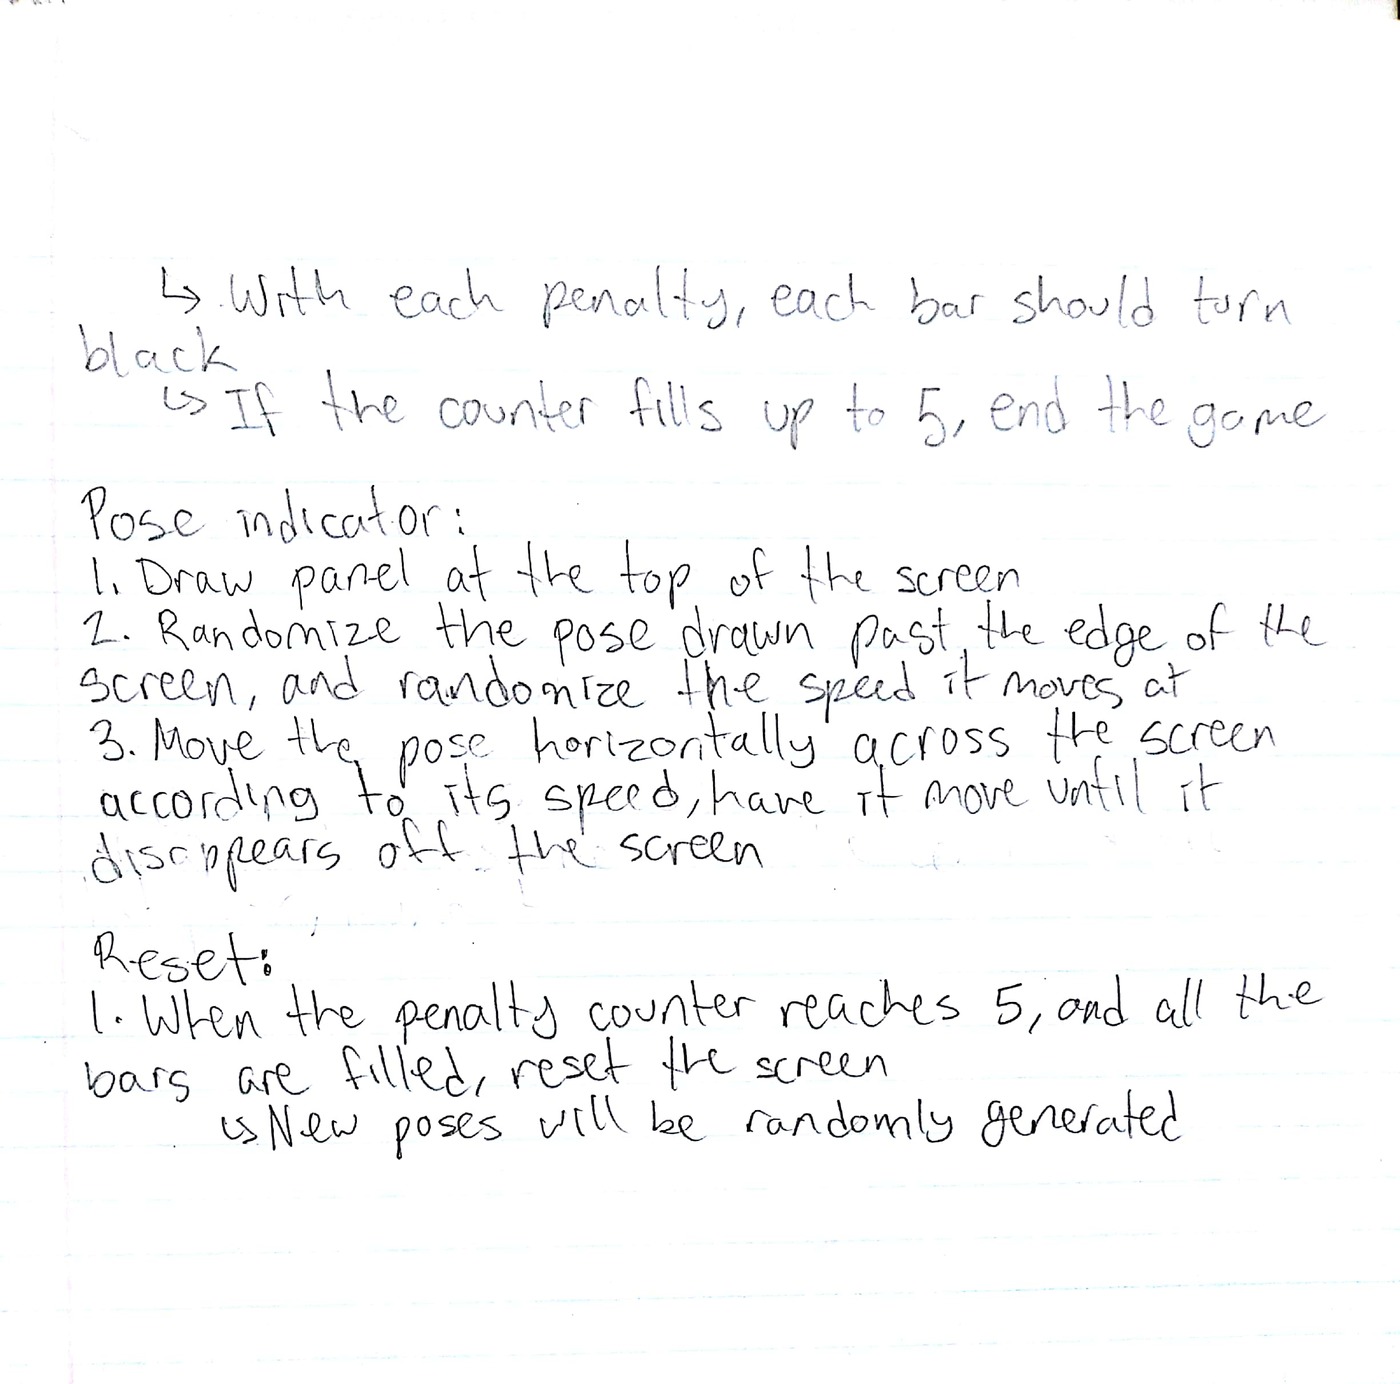 ↳ With each penalty, each bar should turn
black
↳ If the counter fills up to 5, end the game
Pose indicator:
1. Draw panel at the top of the screen
2. Randomize the pose drawn past the edge of the
screen, and randomize the speed it moves at
3. Move the pose horizontally across the screen
according to its speed, have it move until it
disappears off the screen
Reset:
1. When the penalty counter reaches 5, and all the
bars are filled, reset the screen
↳ New poses will be randomly generated